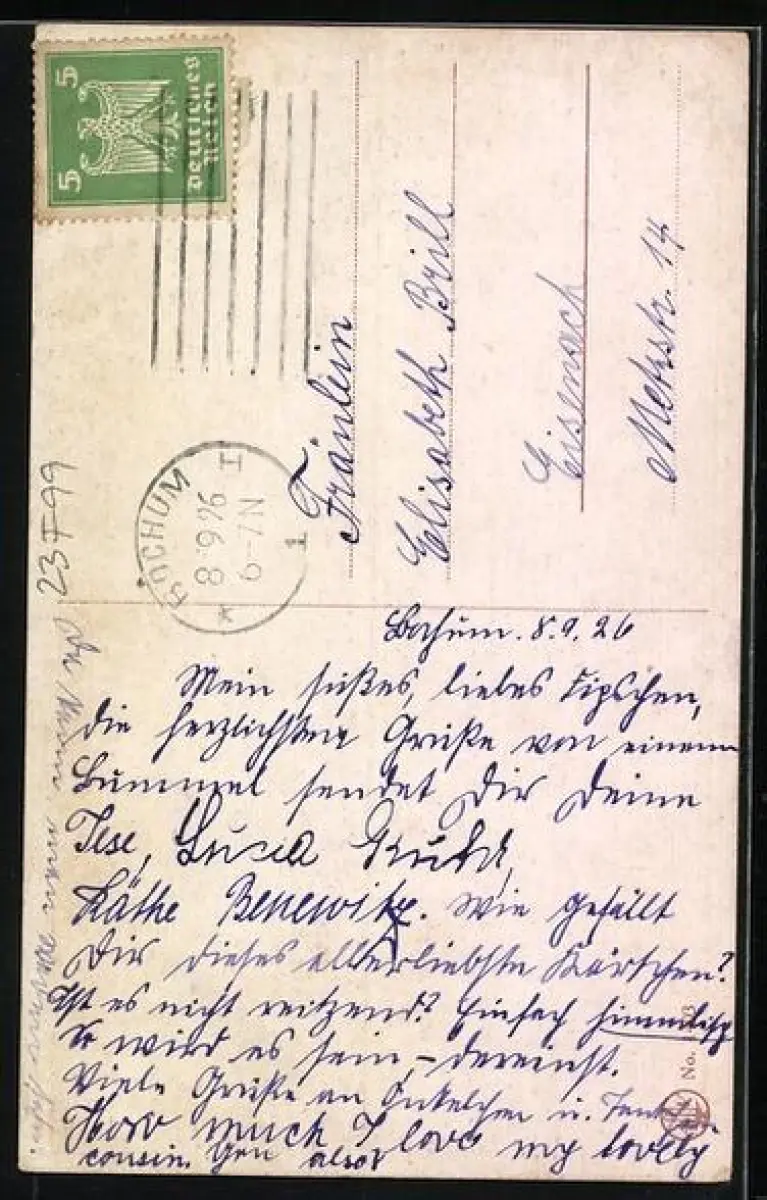 5 5
Deutsches
Reich
BOCHUM 1
8.9.26
6-7N
I
23F99
Fräulein
Elisabeth Brill
Eisenach
Metzstr. 14
Bochum. 8.9.26
Mein süßes, liebes
die herzlichsten Grüße von einem
Bummel sendet Dir Deine
Ilse,
Käthe Benewitz. Wie gefällt
Dir dieses allerliebste Kärtchen?
Ist es nicht reitzend? Einfach himmlisch
So wird es sein, – dereinst.
Viele Grüße an Onkelchen u.
How much I love my lovely
cousin. You also?
No.